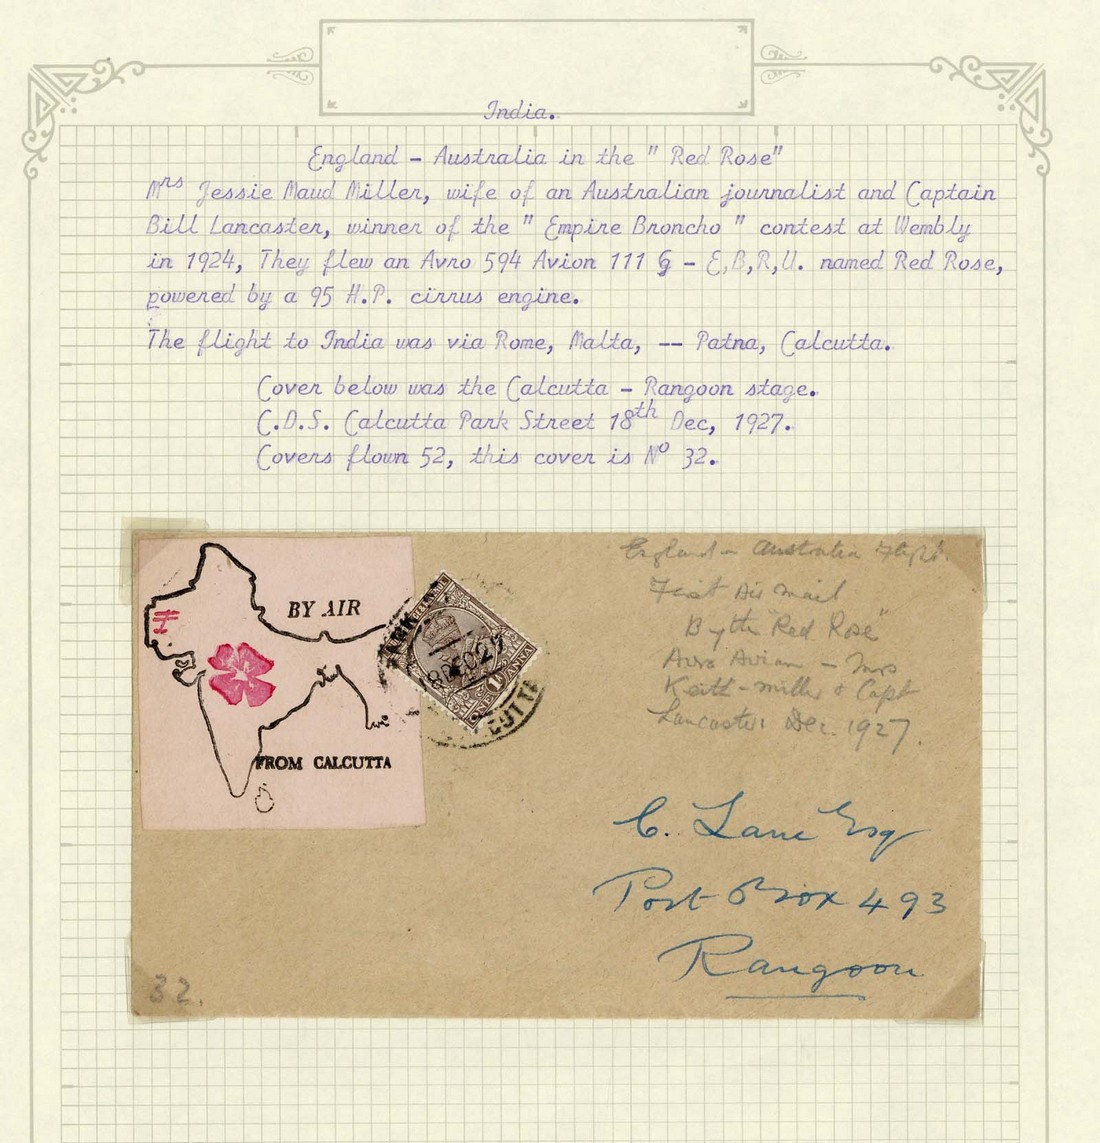 India.
England - Australia in the " Red Rose"
Mrs Jessie Maud Miller, wife of an Australian journalist and Captain
Bill Lancaster, winner of the " Empire Broncho " contest at Wembly
in 1924, They flew an Avro 594 Avion 111 G - E,B,R,U. named Red Rose,
powered by a 95 H.P. cirrus engine.
The flight to India was via Rome, Malta, -- Patna, Calcutta.
Cover below was the Calcutta - Rangoon stage.
C.D.S. Calcutta Park Street 18th Dec, 1927.
Covers flown 52, this cover is No 32.
BY AIR
FROM CALCUTTA
8 DEC 27
ONE 1 ANNA
CUTTA
England - Australia flight.
First Air Mail
By the "Red Rose"
Avro Avian - Mrs
Keith-Miller & Capt
Lancaster Dec. 1927.
C. Lane Esq
Post Box 493
Rangoon
32.